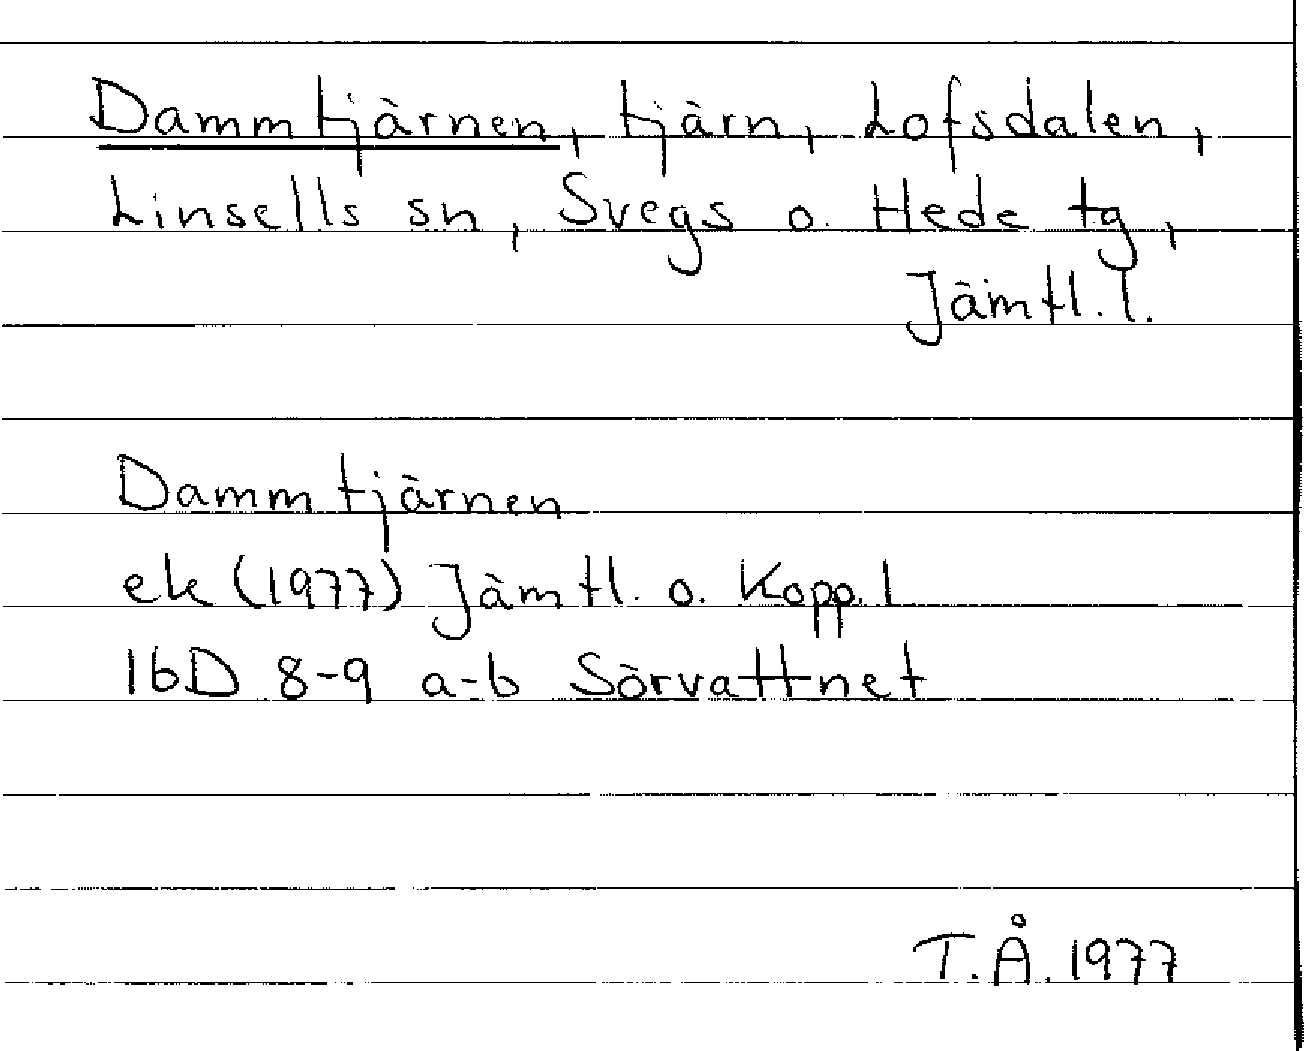 Dammtjärnen, tjärn, Lofsdalen,
Linsells sn, Svegs o. Hede tg,
Jämtl. l.
Dammtjärnen
ek (1977) Jämtl. o. Kopp. l
16D 8-9 a-b Sörvattnet
T.Å. 1977